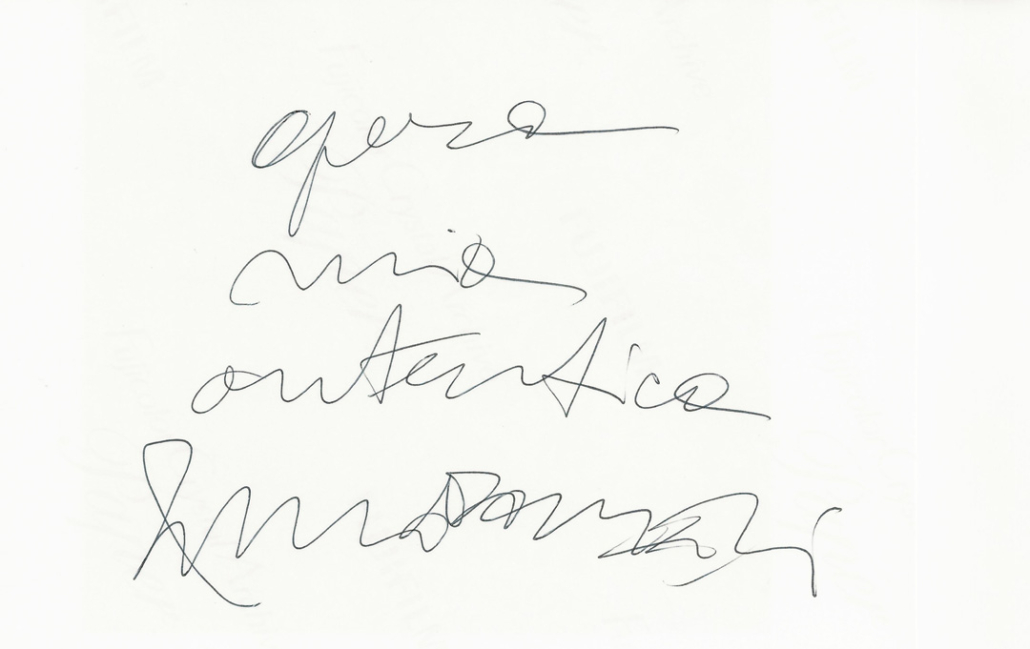 opera
mia
autentica